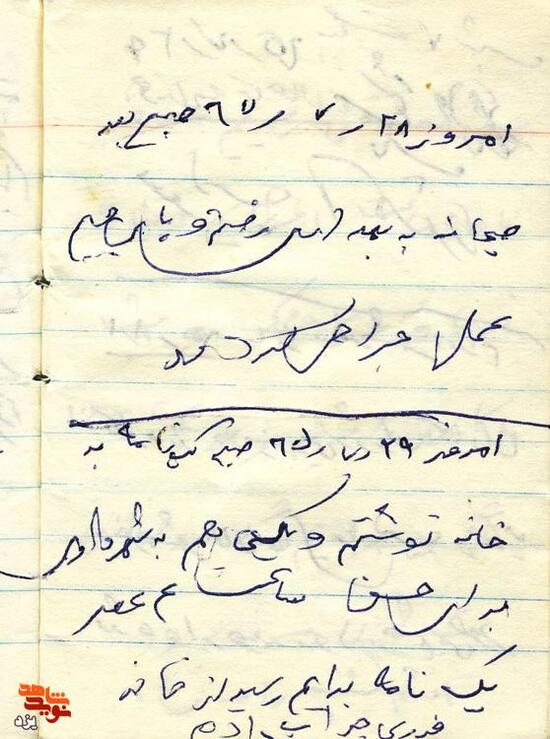 امروز ۲۸ ر ۷ ر ۶۵ صبح بعد
صبحانه به بهداری رفتم و پای چپم
عمل جراحی کردند
امروز ۲۹ ر ۷ ر ۶۵ صبح یک نامه به
خانه نوشتم و یکی هم به شهرداری
برای حسن ساعت ۴ عصر
یک نامه برایم رسید از خانه
فوری جواب دادم
نوید شاهد
یزد